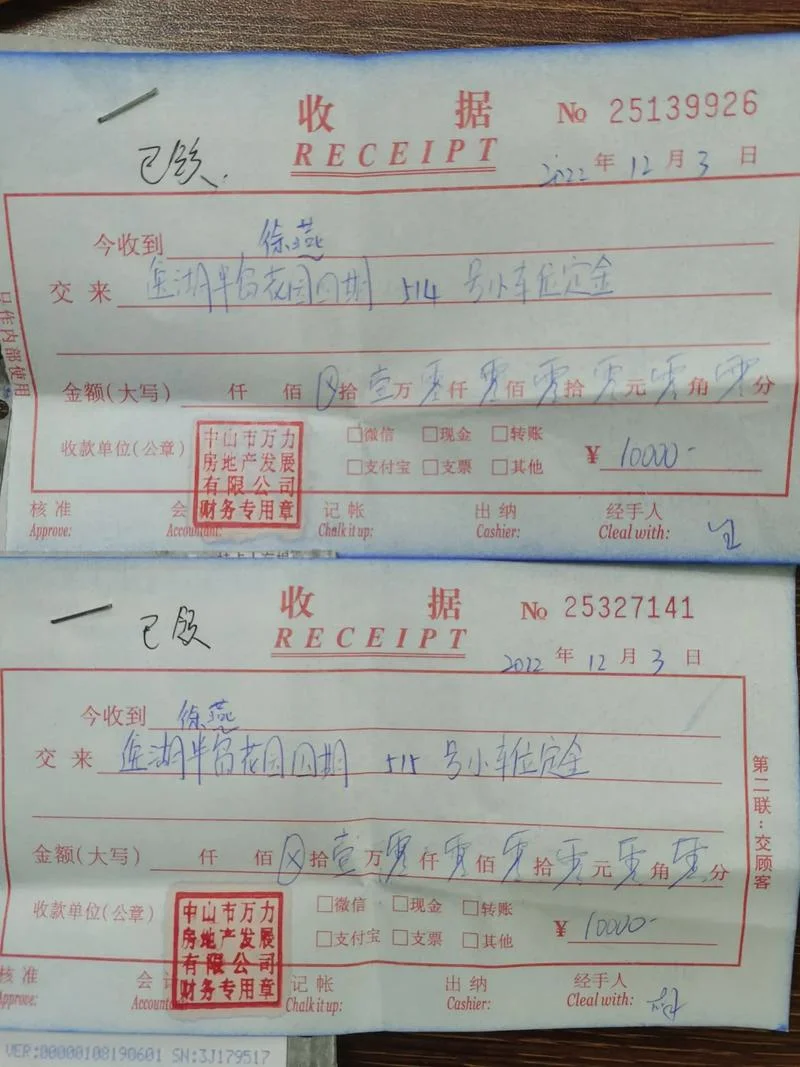 收 据 № 25139926
RECEIPT
2022 年 12 月 3 日
今收到 徐燕
交 来 金湖半岛花园四期 514 号小车位定金
只作内部使用
金额(大写) 仟 佰 ⊗ 拾 壹 万 零 仟 零 佰 零 拾 零 元 零 角 零 分
收款单位(公章) □微信 □现金 □转账
□支付宝 □支票 □其他 ¥ 10000-
中山市万力
房地产发展
有限公司
财务专用章
核 准 会 记 帐 出 纳 经手人
Approve: Accountant: Chalk it up: Cashier: Cleal with:
收 据 № 25327141
RECEIPT
2022 年 12 月 3 日
今收到 徐燕
交 来 金湖半岛花园四期 515 号小车位定金
第二联:交顾客
金额(大写) 仟 佰 ⊗ 拾 壹 万 零 仟 零 佰 零 拾 零 元 零 角 零 分
收款单位(公章) □微信 □现金 □转账
□支付宝 □支票 □其他 ¥ 10000-
中山市万力
房地产发展
有限公司
财务专用章
核 准 会 记 帐 出 纳 经手人
Approve: Accountant: Chalk it up: Cashier: Cleal with:
VER:00000108190601 SN:3J179517